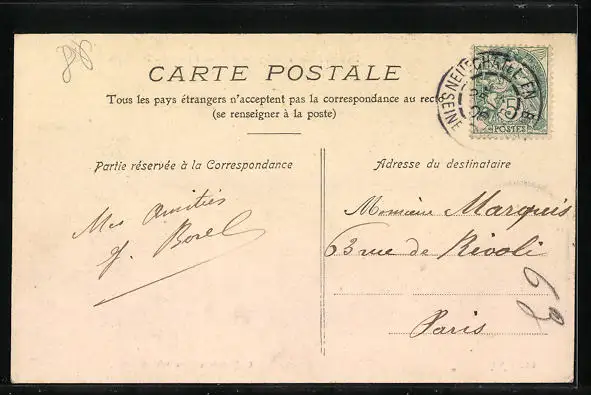 88
CARTE POSTALE
Tous les pays étrangers n'acceptent pas la correspondance au recto
(se renseigner à la poste)
NEUFCHATEL-EN-B
SEINE
5
POSTES
Partie réservée à la Correspondance
Mes Amitiés
Borel
Adresse du destinataire
Monsieur Marquis
63 rue de Rivoli
Paris
63